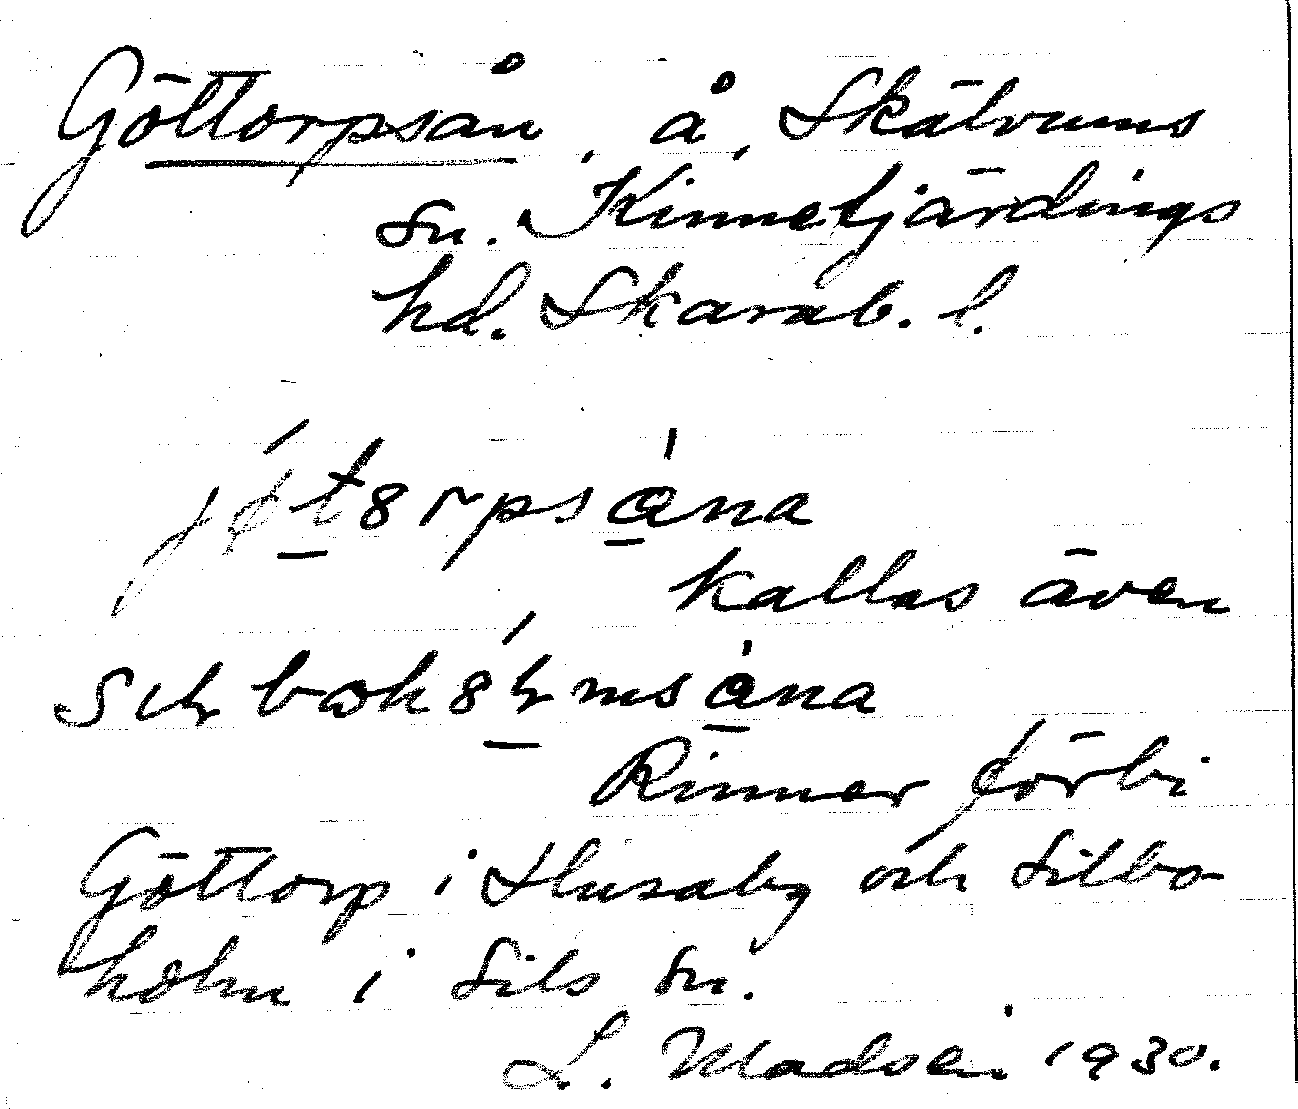 Göttorpsån, å, Skälvums
sn. Kinnefjärdings
hd. Skarab. l.
kallas även
Rinner förbi
Göttorp i Husaby och Silbo-
holm i Sils sn.
L. Madsen 1930.